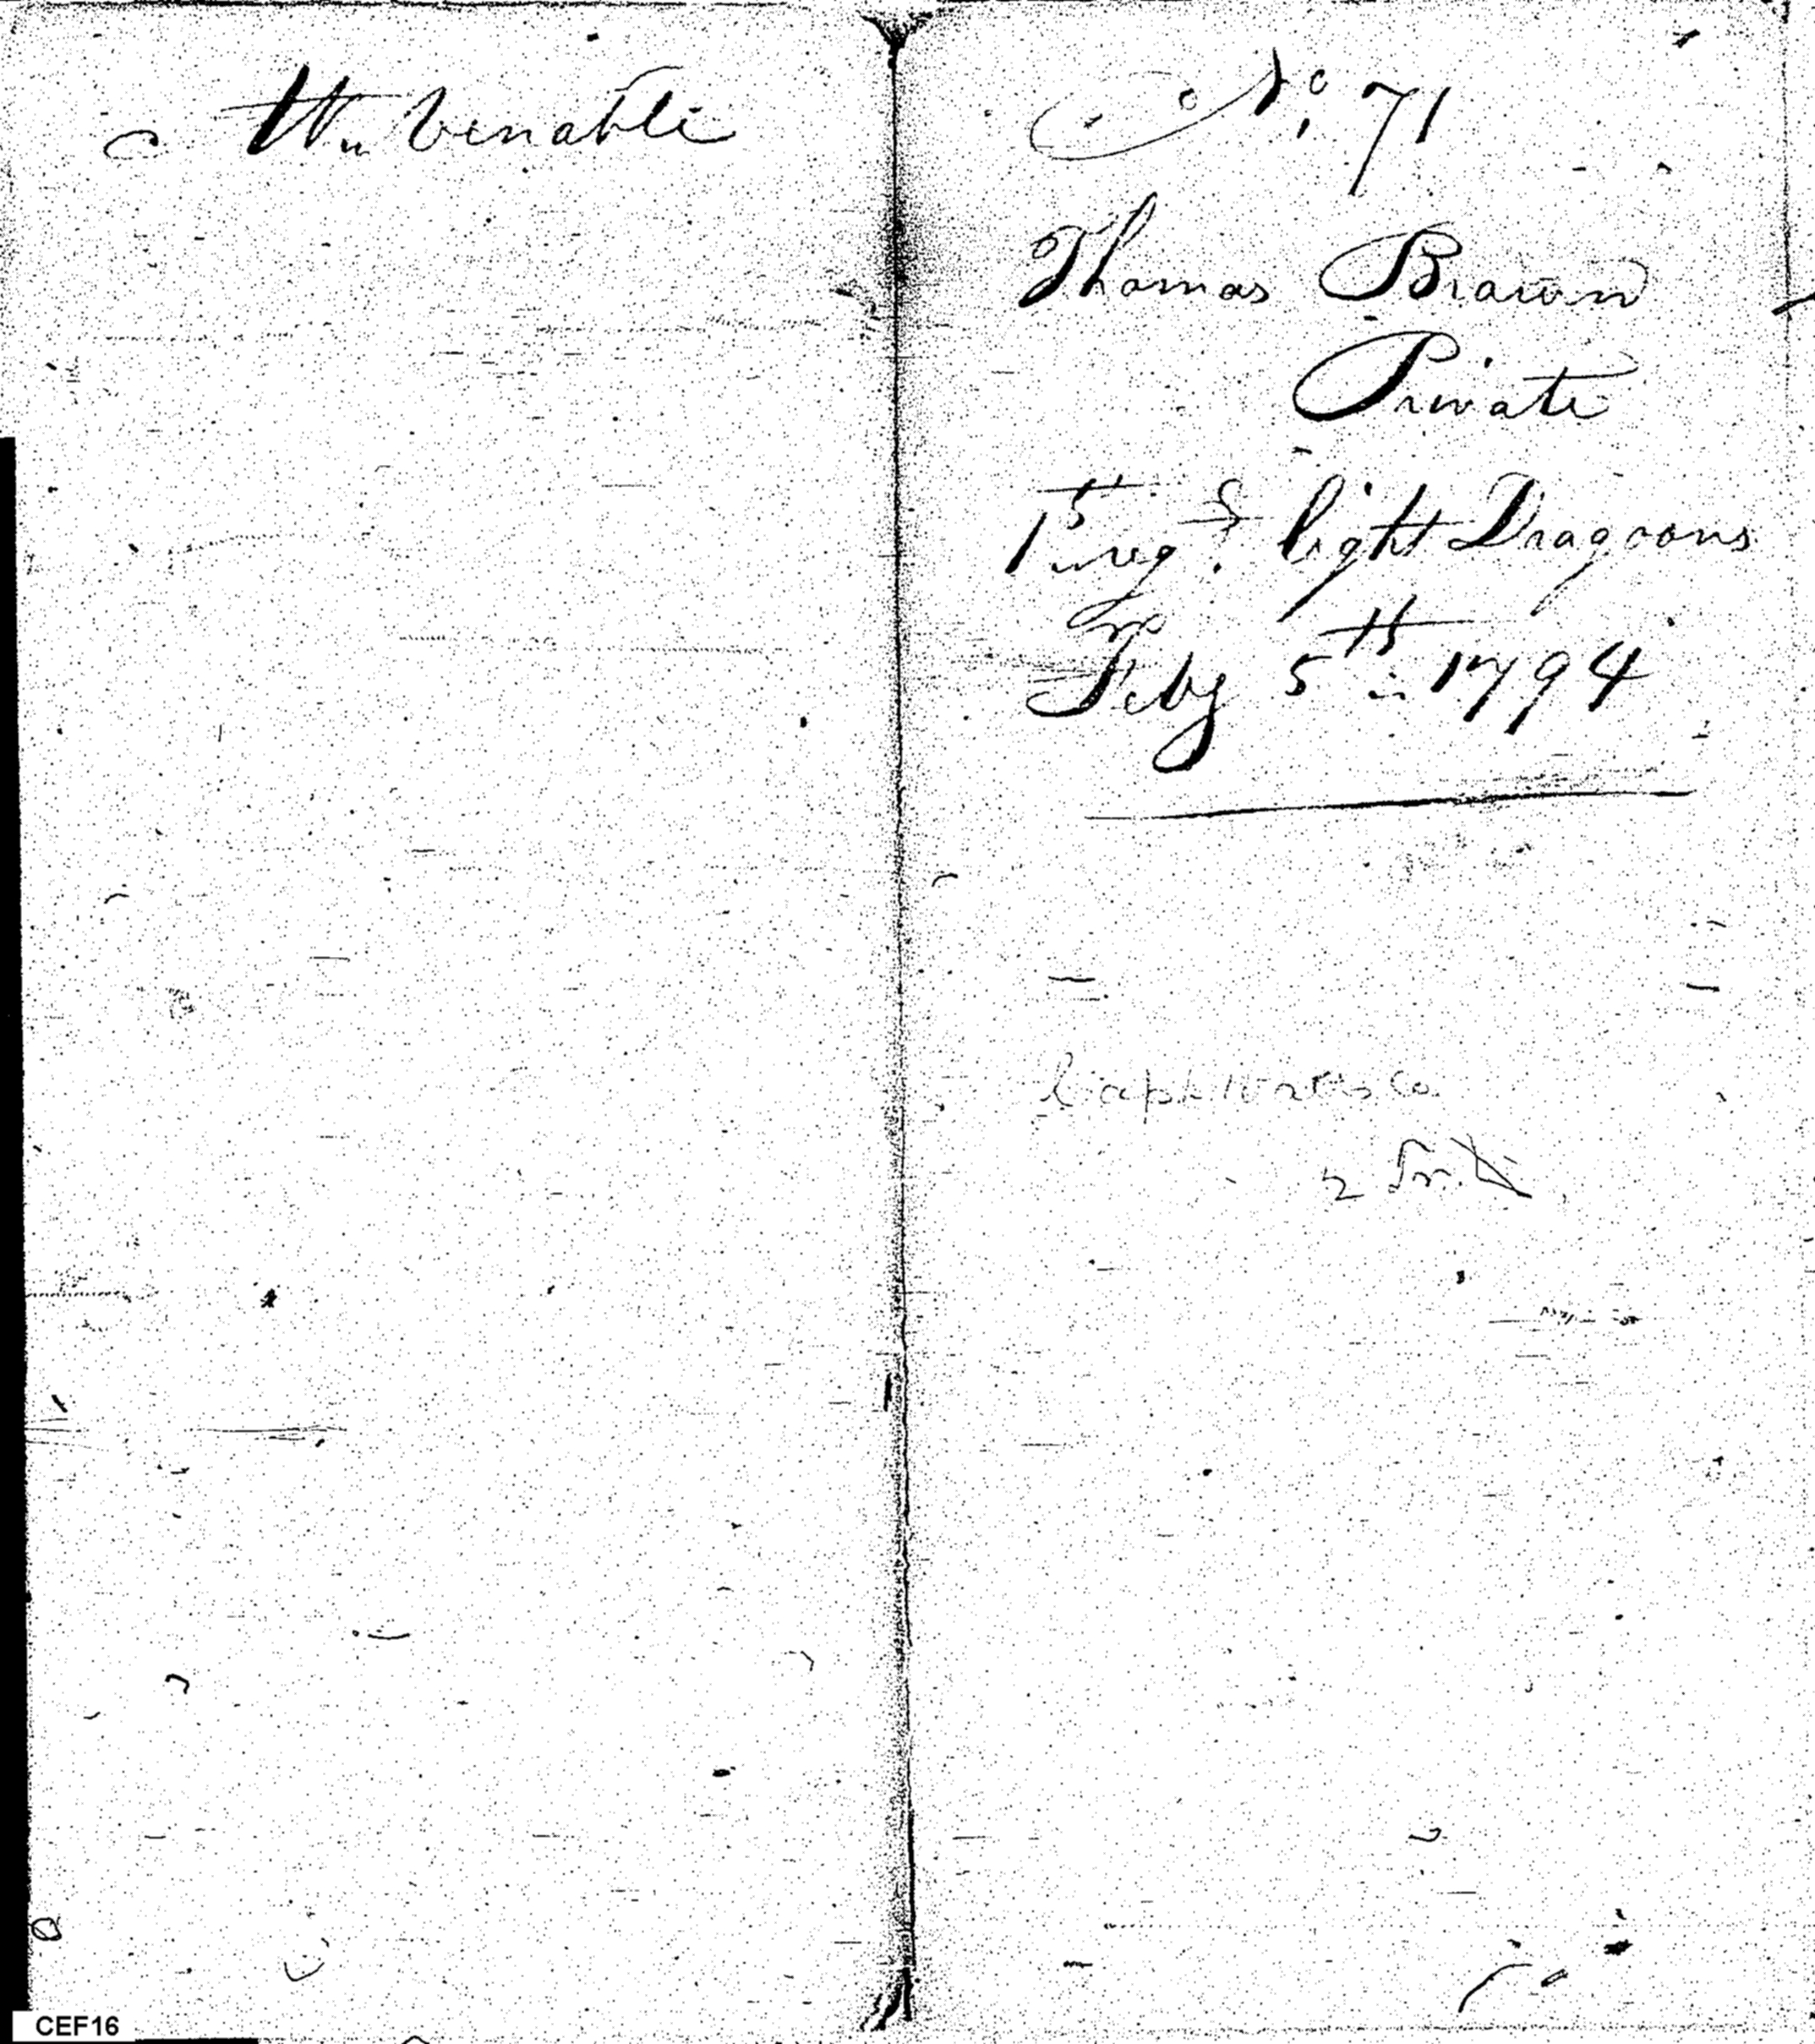 Wm Venable
No. 71
Thomas Brown
Private
1st regt light Dragoons
Feby 5th 1794
Capt Watts Co
2
CEF16